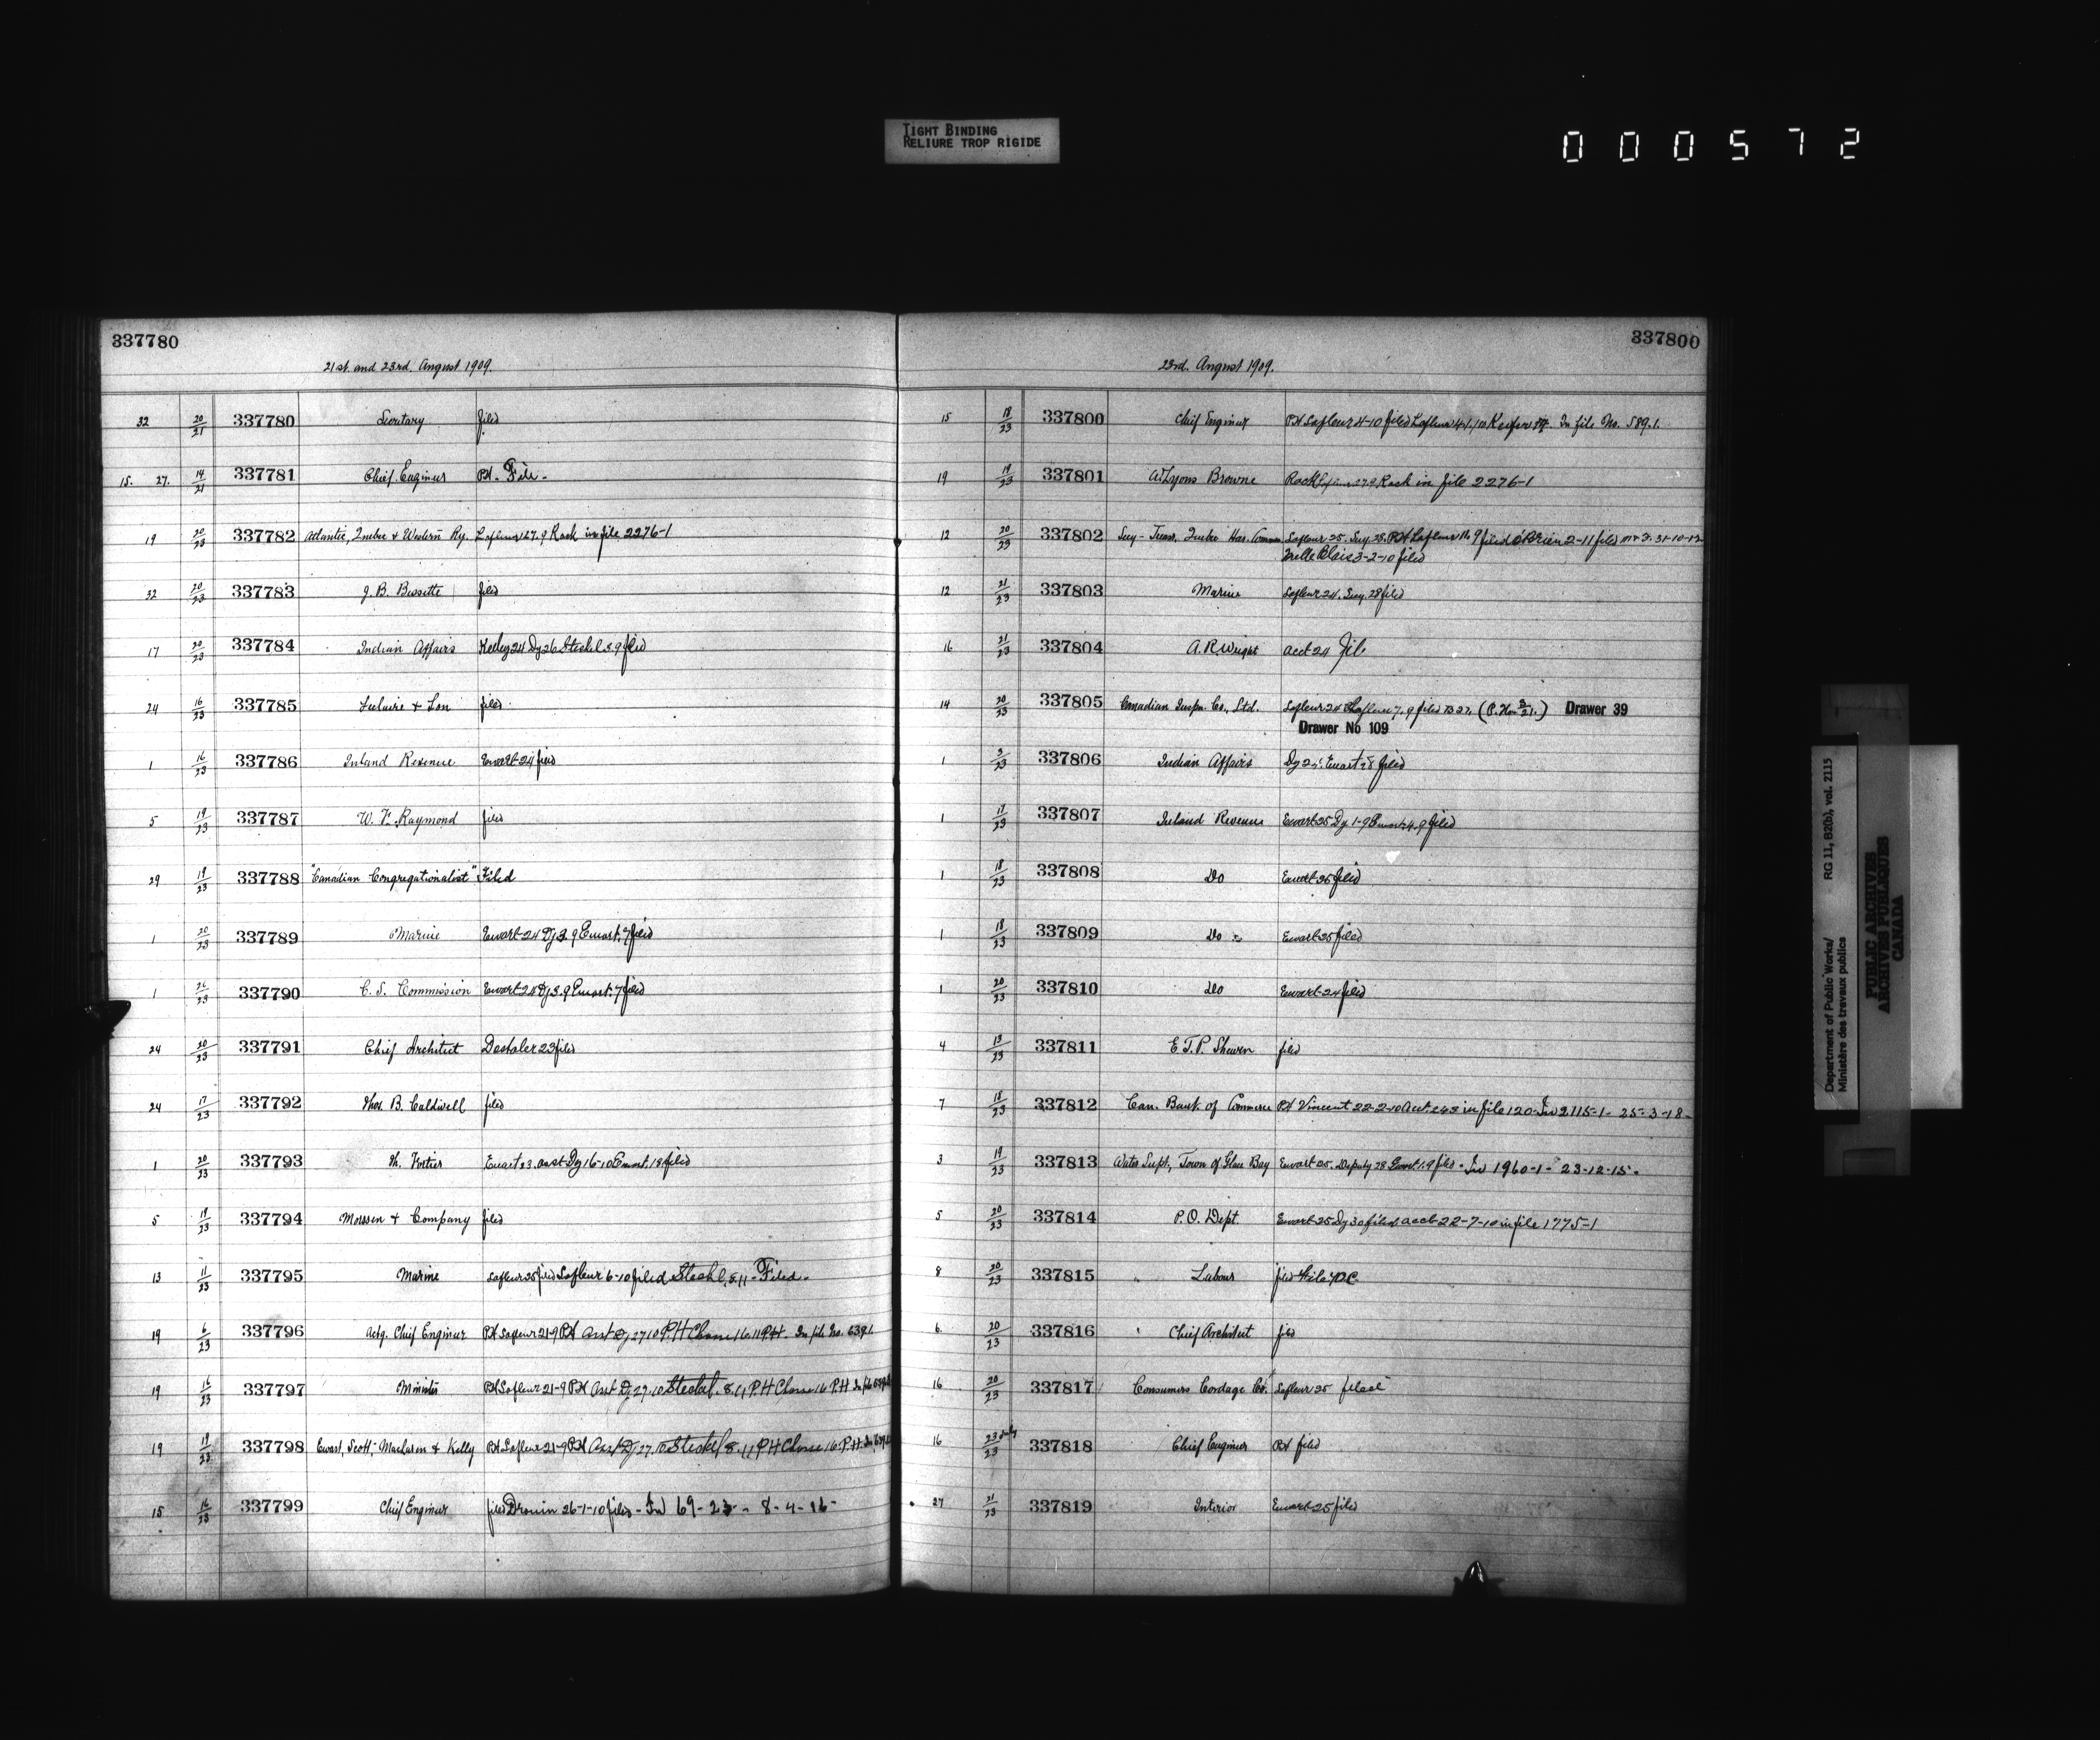 TIGHT BINDING
RELIURE TROP RIGIDE
000572
337780
21st. and 23rd. August 1909.
32 20/21 337780 Secretary filed
15. 27. 14/21 337781 Chief Engineer PH. File.
19 20/23 337782 Atlantic, Quebec & Western Ry. Lafleur 27.9 Rack in file 2276-1
32 20/23 337783 J. B. Bissette filed
17 20/23 337784 Indian Affairs Keeley 24 Dy 26 Steckel 3.9 filed
24 16/23 337785 & Son filed
1 16/23 337786 Inland Revenue Ewart 24 filed
5 19/23 337787 W. F. Raymond filed
29 19/23 337788 "Canadian Congregationalist" Filed
1 20/23 337789 Marine Ewart 24 Dy 3.9 Ewart. 7 filed
1 337790 C. S. Commission Ewart 24 Dy 3.9 Ewart. 7 filed
24 20/23 337791 Chief Architect Deshaler 23 filed
24 17/23 337792 Thos. B. Caldwell filed
1 20/23 337793 Fortier Ewart 23. asst Dy 16-10 Ewart. 18 filed
5 19/23 337794 & Company filed
13 11/23 337795 Marine Lafleur 25 filed Lafleur 6-10 filed Steckel. 8.11 - Filed.
19 6/23 337796 Actg. Chief Engineer PH Lafleur 21-9 PH Asst Dy 27.10 P.H Chasse 16.11 P.H. In file No. 639.1.
19 16/23 337797 Minister PH Lafleur 21-9 PH Asst Dy 27.10 Steckel. 8.11 P.H Chasse 16 P.H In file 639.1
19 19/23 337798 Ewart, Scott, Maclaren & Kelly PH Lafleur 21-9 PH Asst Dy 27.10 Steckel 8.11 P.H Chasse 16. P.H. In
15 16/23 337799 Chief Engineer filed Drouin 26-1-10 filed - In 69-23 - 8-4-16-
337800
23rd. August 1909.
15 18/23 337800 Chief Engineer PH Lafleur 4-10 filed Lafleur Keefer In file No. 589.1.
19 19/23 337801 A. Lyons Browne Rack 27.9 Rack in file 2276-1
12 20/23 337802 Secy-Treas. Quebec Har. Commn Lafleur 25. Secy. 28. PH Lafleur 9 filed O'Brien 2-11 filed 31-10-12
Melle Blais 3-2-10 filed
12 21/23 337803 Marine Lafleur 24. Secy. 28 filed
16 21/23 337804 A. R. Wright acct 24 file
14 20/23 337805 Canadian Inspn. Co., Ltd. Lafleur 24 Lafleur 7.9 filed (P. ) Drawer 39
Drawer No 109
1 3/23 337806 Indian Affairs Dy 25 Ewart 28 filed
1 17/23 337807 Inland Revenue Ewart 25 Dy 1-9 Ewart. 4.9 filed
1 18/23 337808 Do Ewart 25 filed
1 18/23 337809 Do Ewart 25 filed
1 20/23 337810 Do Ewart 24 filed
4 13/23 337811 E. T. P. Shewen filed
7 18/23 337812 Can. Bank of Commerce PH Vincent 22-2-10 in file 120- In 2115-1- 25-3-18-
3 19/23 337813 Water Supt., Town of Glace Bay Ewart 25. Deputy 28 Ewart 1.9 filed - In 1960-1- 23-12-15.
5 20/23 337814 P.O. Dept. Ewart 25 Dy 30 filed acct 22-7-10 in file 1775-1
8 20/23 337815 Labour filed
6. 20/23 337816 Chief Architect filed
16 20/23 337817 Consumers Cordage Co. Lafleur 25 filed
16 23 July/23 337818 Chief Engineer PH filed
27 21/23 337819 Interior Ewart 25 filed
Department of Public Works/
Ministère des travaux publics
RG 11, B2(b), vol. 2115
PUBLIC ARCHIVES
ARCHIVES PUBLIQUES
CANADA